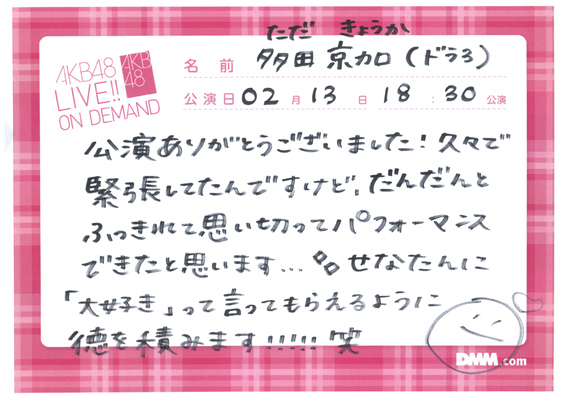 AKB48
LIVE!!
ON DEMAND
AKB
48
ただ きょうか
名前 多田 京加 (ドラ3)
公演日 02月 13日 18:30公演
公演ありがとうございました!久々で
緊張してたんですけど、だんだんと
ふっきれて思い切ってパフォーマンス
できたと思います... せなたんに
「大好き」って言ってもらえるように
徳を積みます!!!!! 笑
DMM.com